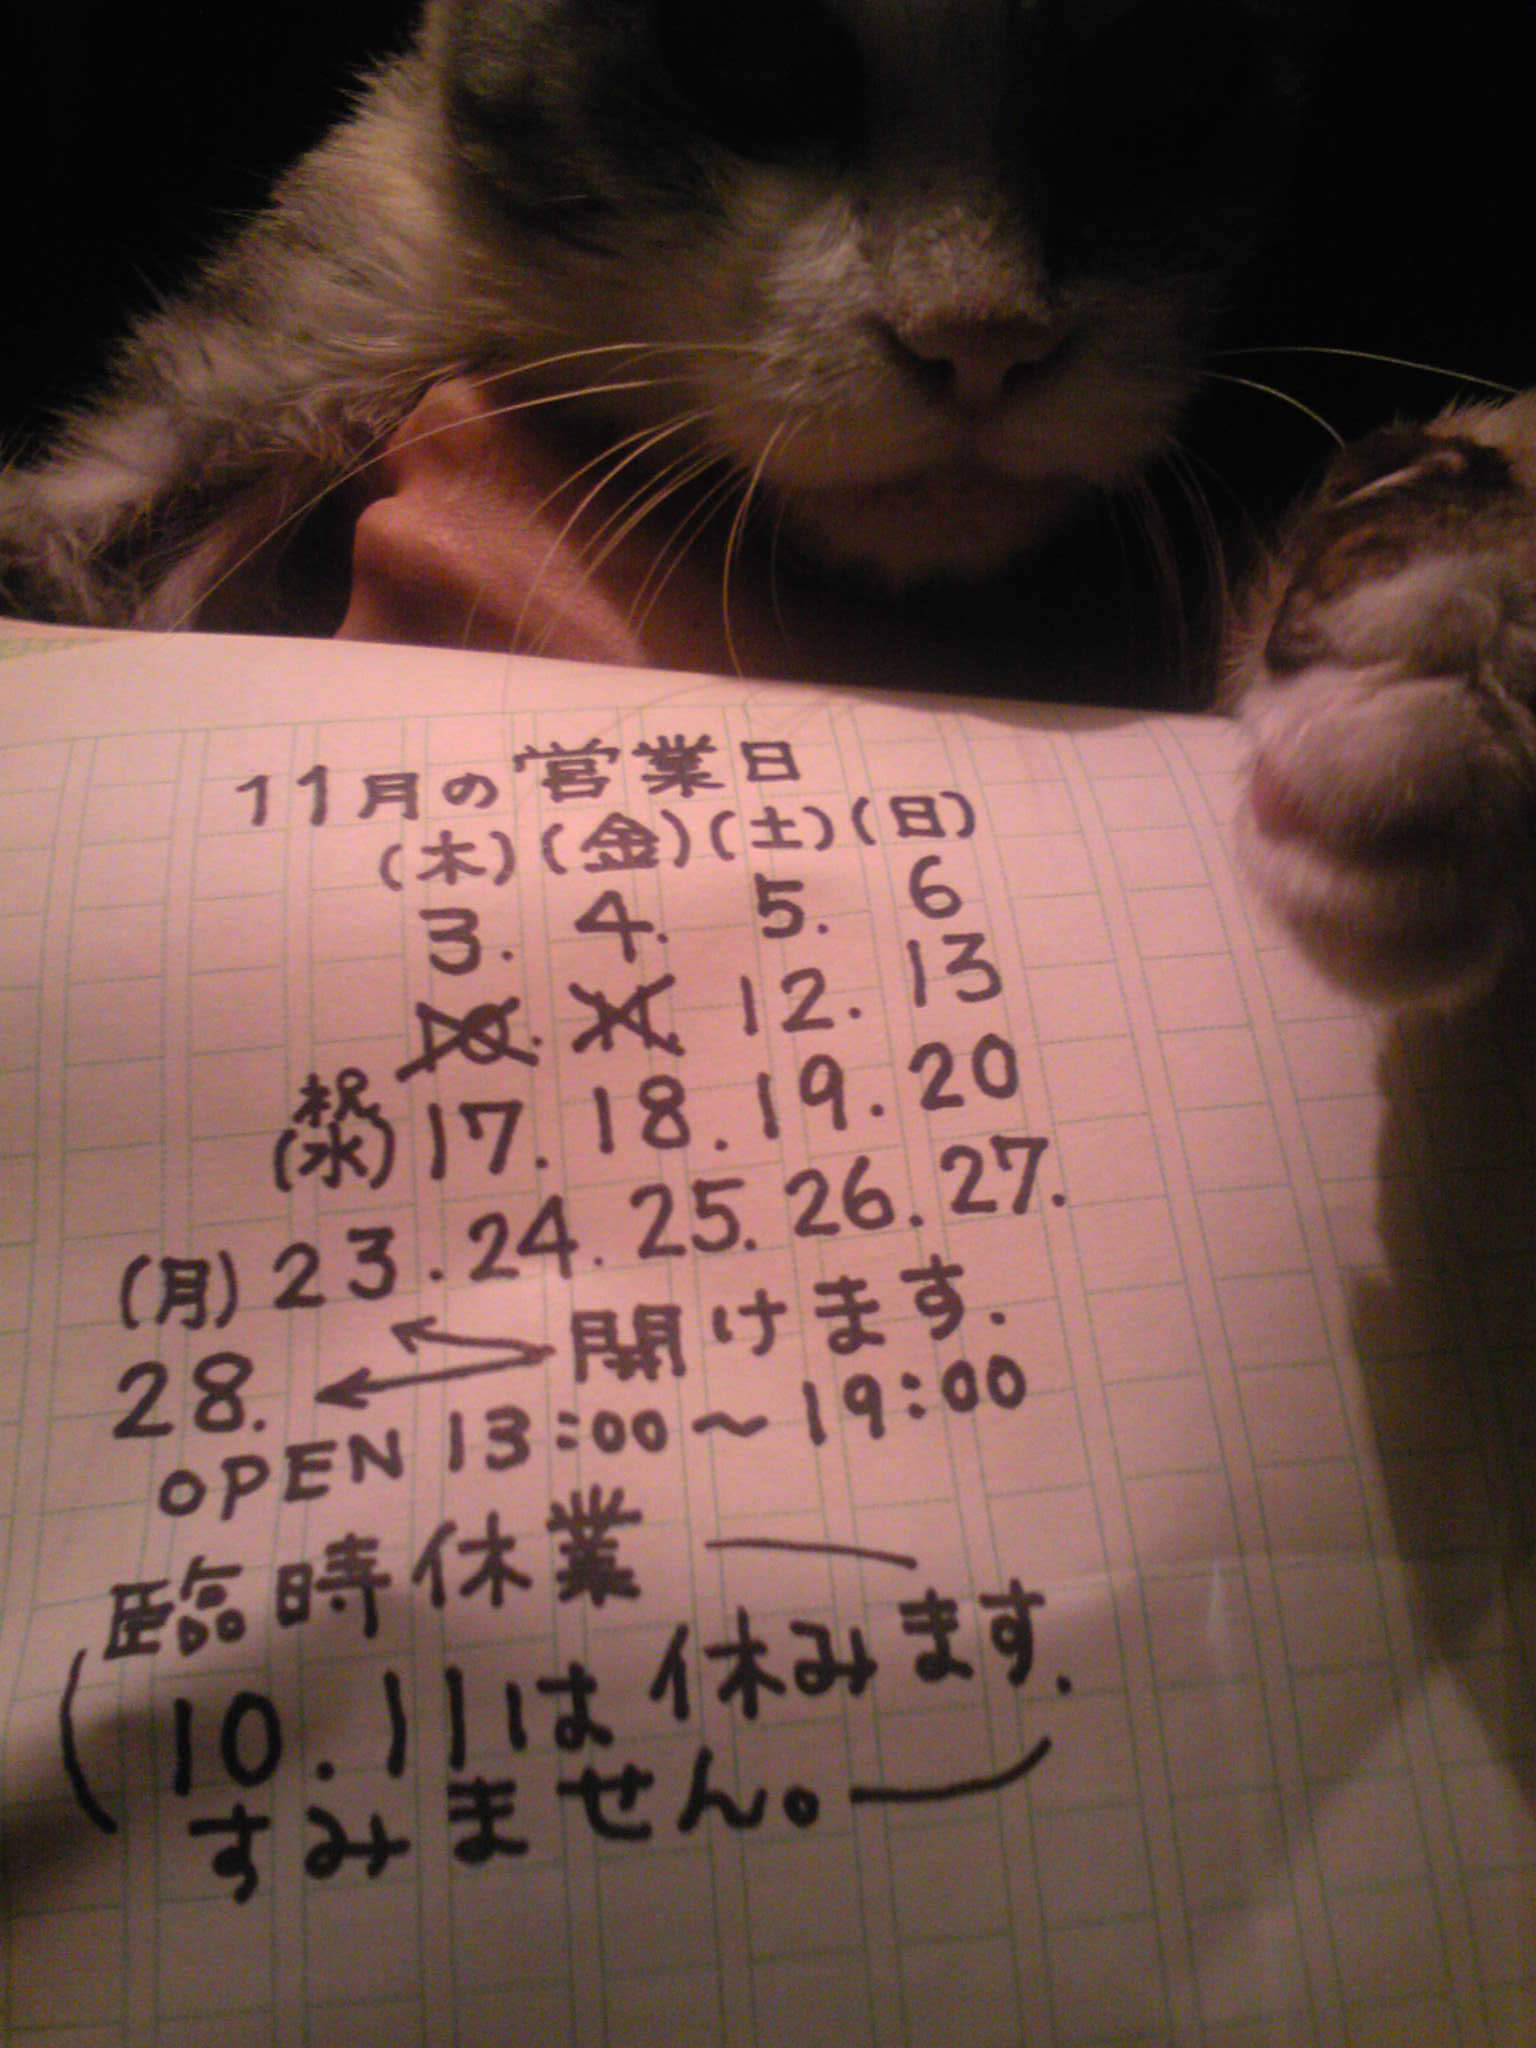 11月の営業日
(木)(金)(土)(日)
3. 4. 5. 6
10. 11. 12. 13
祝
(水) 17. 18. 19. 20
(月) 23. 24. 25. 26. 27.
28. 開けます.
OPEN 13:00〜19:00
臨時休業
(10.11は休みます.
すみません。)